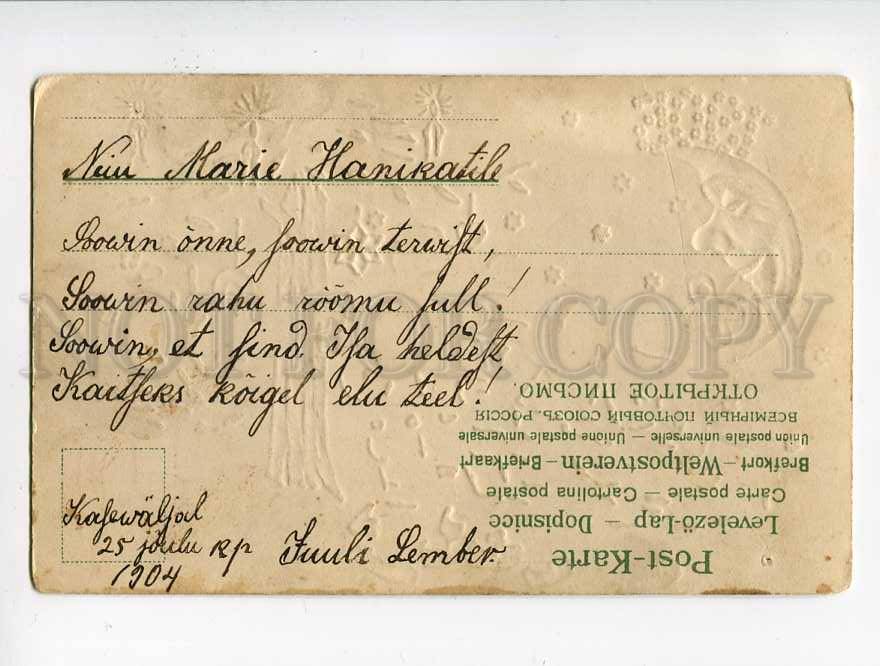 Neiu Marie Hanikatile
Soowin õnne, soowin terwist,
Soowin rahu rõõmu sull!
Soowin, et sind Isa heldest
Kaitseks kõigel elu teel!
Kasewäljal
25 jõulu kp
1904
Juuli Lember.
Post-Karte
Levelező-Lap — Dopisnice
Carte postale — Cartolina postale
Brefkort — Weltpostverein — Briefkaart
Union postale universelle — Unione postale universale
ВСЕМІРНЫЙ ПОЧТОВЫЙ СОЮЗЪ. РОССІЯ
ОТКРЫТОЕ ПИСЬМО.
NOT FOR COPY